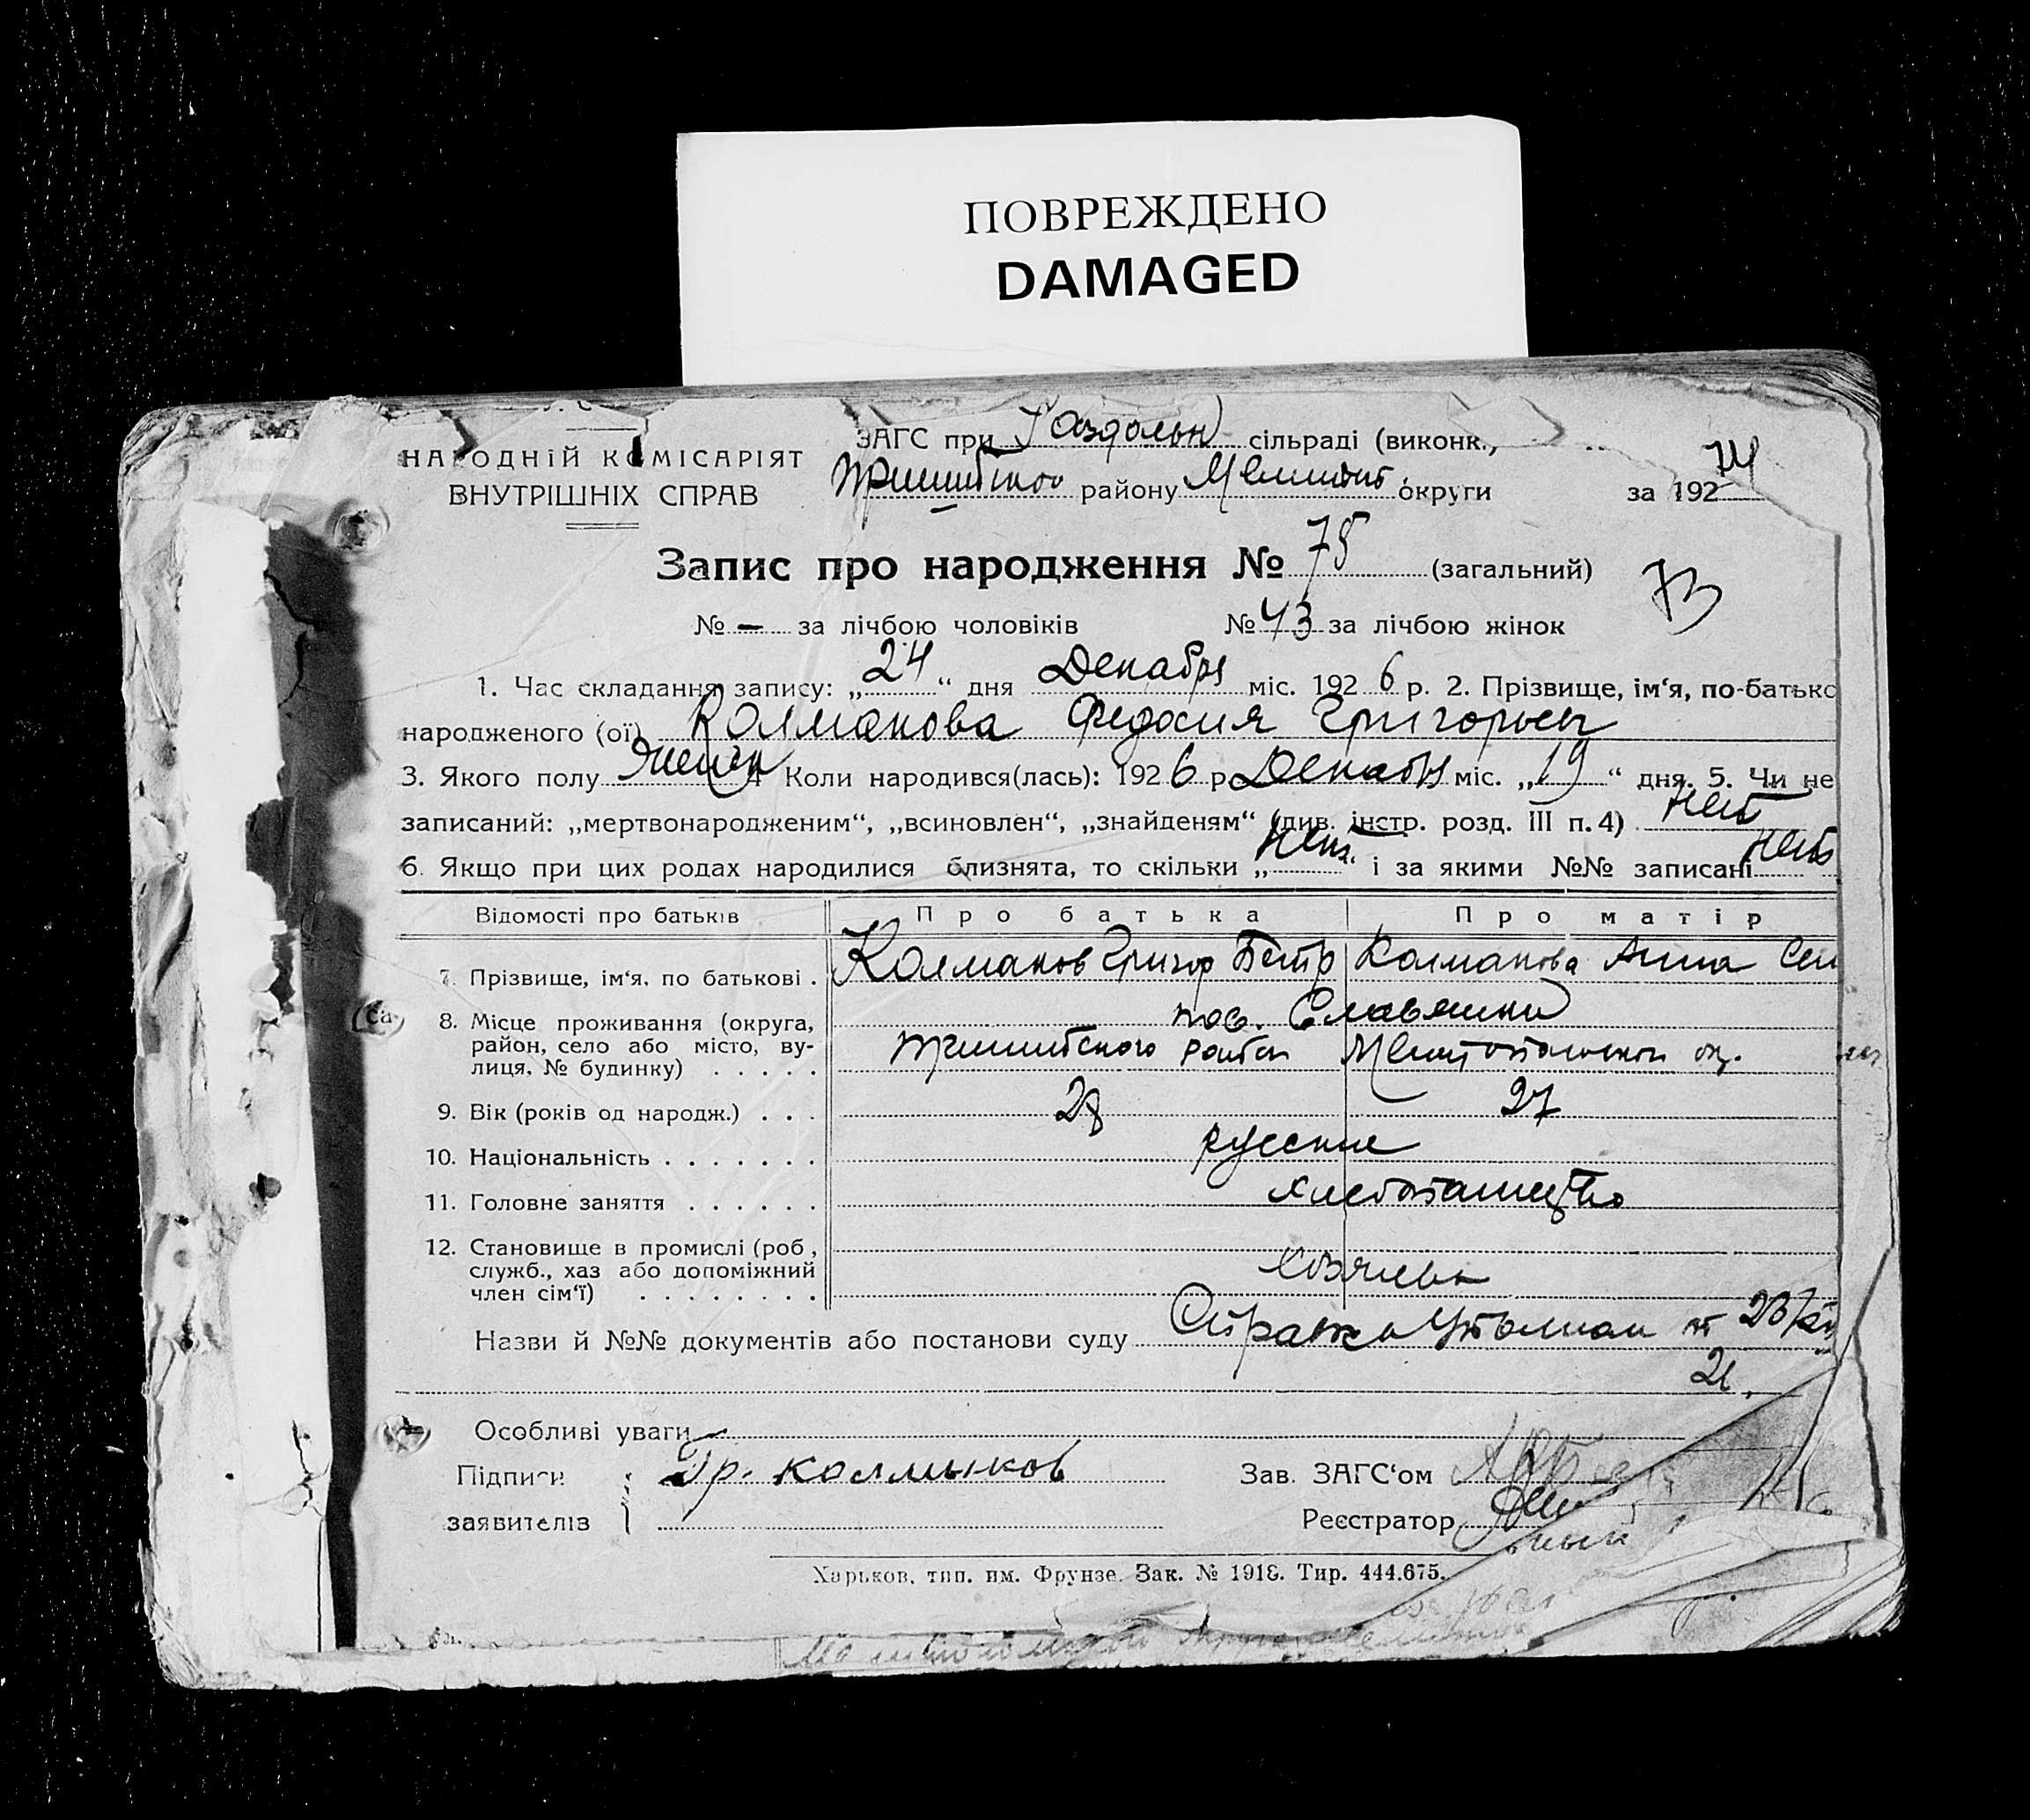 ПОВРЕЖДЕНО
DAMAGED
НАРОДНІЙ КОМІСАРІЯТ
ВНУТРІШНІХ СПРАВ
ЗАГС при Раздольн сільраді (виконк.,
району Мелитоп. округи за 192
74
Запис про народження № 75 (загальний)
73
№ – за лічбою чоловіків № 43 за лічбою жінок
1. Час складання запису: „24“ дня Декабря міс. 1926 р. 2. Прізвище, ім‘я, по-батько
народженого (ої) Колмакова Федосия Григорьев
3. Якого полу женск 4 Коли народився(лась): 1926 р. Декабря міс. „19“ дня. 5. Чи не
записаний: „мертвонародженим“, „всиновлен“, „знайденям“ (див. інстр. розд. III п. 4) нет
6. Якщо при цих родах народилися близнята, то скільки „нет“ і за якими №№ записані нет
Відомості про батьків Про батька Про матір
7. Прізвище, ім‘я, по батькові . Колмаков Григор Петр Колмакова Анна Сем
8. Місце проживання (округа, пос. Славянка
район, село або місто, ву- района Мелитопольской ок.
лиця, № будинку) . . . . .
9. Вік (років од народж.) . . . 28 27
10. Національність . . . . . . . русские
11. Головне заняття . . . . . . хлебопашество
12. Становище в промислі (роб.,
служб., хаз або допоміжний хозяева
член сім‘ї) . . . . . . . .
Назви й №№ документів або постанови суду от 23/XII
26.
Особливі уваги –
Підписи Гр. Колмыков Зав. ЗАГС‘ом
заявителів Реєстратор
Харьков, тип. им. Фрунзе. Зак. № 1918. Тир. 444.675.